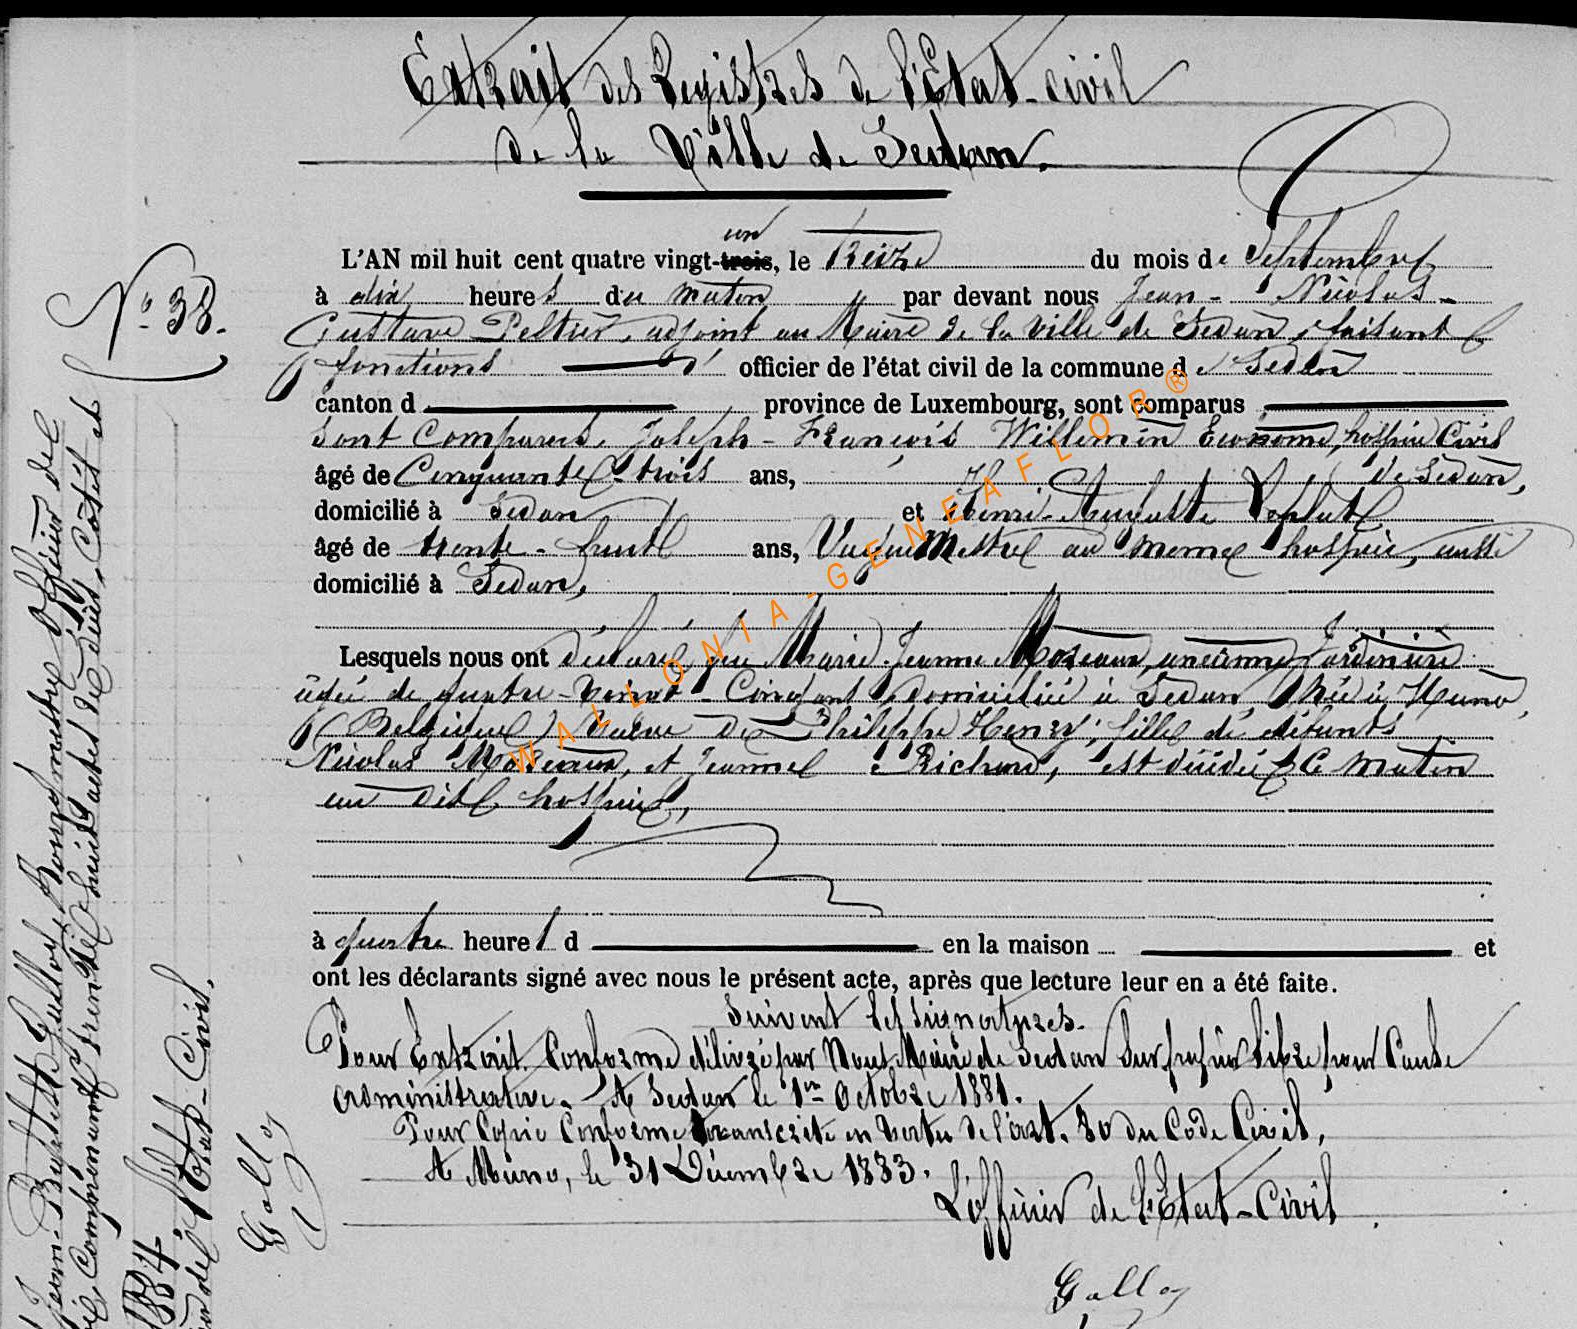 Extrait des Registres de l'Etat-civil
de la Ville de Sedan.
un
L'AN mil huit cent quatre vingt-trois, le Treize du mois de Septembre
à dix heures du matin par devant nous Jean-Nicolas-
Gustave Peltier, adjoint au Maire de la Ville de Sedan, faisant
fonctions d' officier de l'état civil de la commune de Sedan
canton d province de Luxembourg, sont comparus
Sont Comparus, Joseph-François Willemin Econome, hospice Civil
âgé de Cinquante-trois ans, de Sedan,
domicilié à Sedan et Henri-Auguste
âgé de trente-huit ans, Vaguemestre au même hospice, aussi
domicilié à Sedan,
Lesquels nous ont déclaré que Marie Jeanne Mozeaux, ancienne Jardinière
âgée de quatre-vingt-Cinq ans, domiciliée à Sedan, née à Muno,
(Belgique) Veuve de Philippe Henry; fille de défunts
Nicolas Mozeaux, et Jeanne Richard, est décédée Ce matin
au dit hospice,
à quatre heures d en la maison et
ont les déclarants signé avec nous le présent acte, après que lecture leur en a été faite.
Suivent les signatures.
Pour Extrait Conforme délivré par Nous Maire de Sedan Sur papier libre pour Cause
administrative. A Sedan le 1er Octobre 1881.
Pour Copie Conforme transcrite en Vertu de l'art. 80 du Code Civil,
A Muno, le 31 Décembre 1883.
L'officier de l'Etat-Civil
Galloy
N° 38.
Jean-Baptiste Galloy, Bourgmestre Officier de l'
Comprenant trente huit actes de Décès, Cotés et
1884.
l'Etat-Civil.
Galloy
WALLONIA-GENEAFLOR®